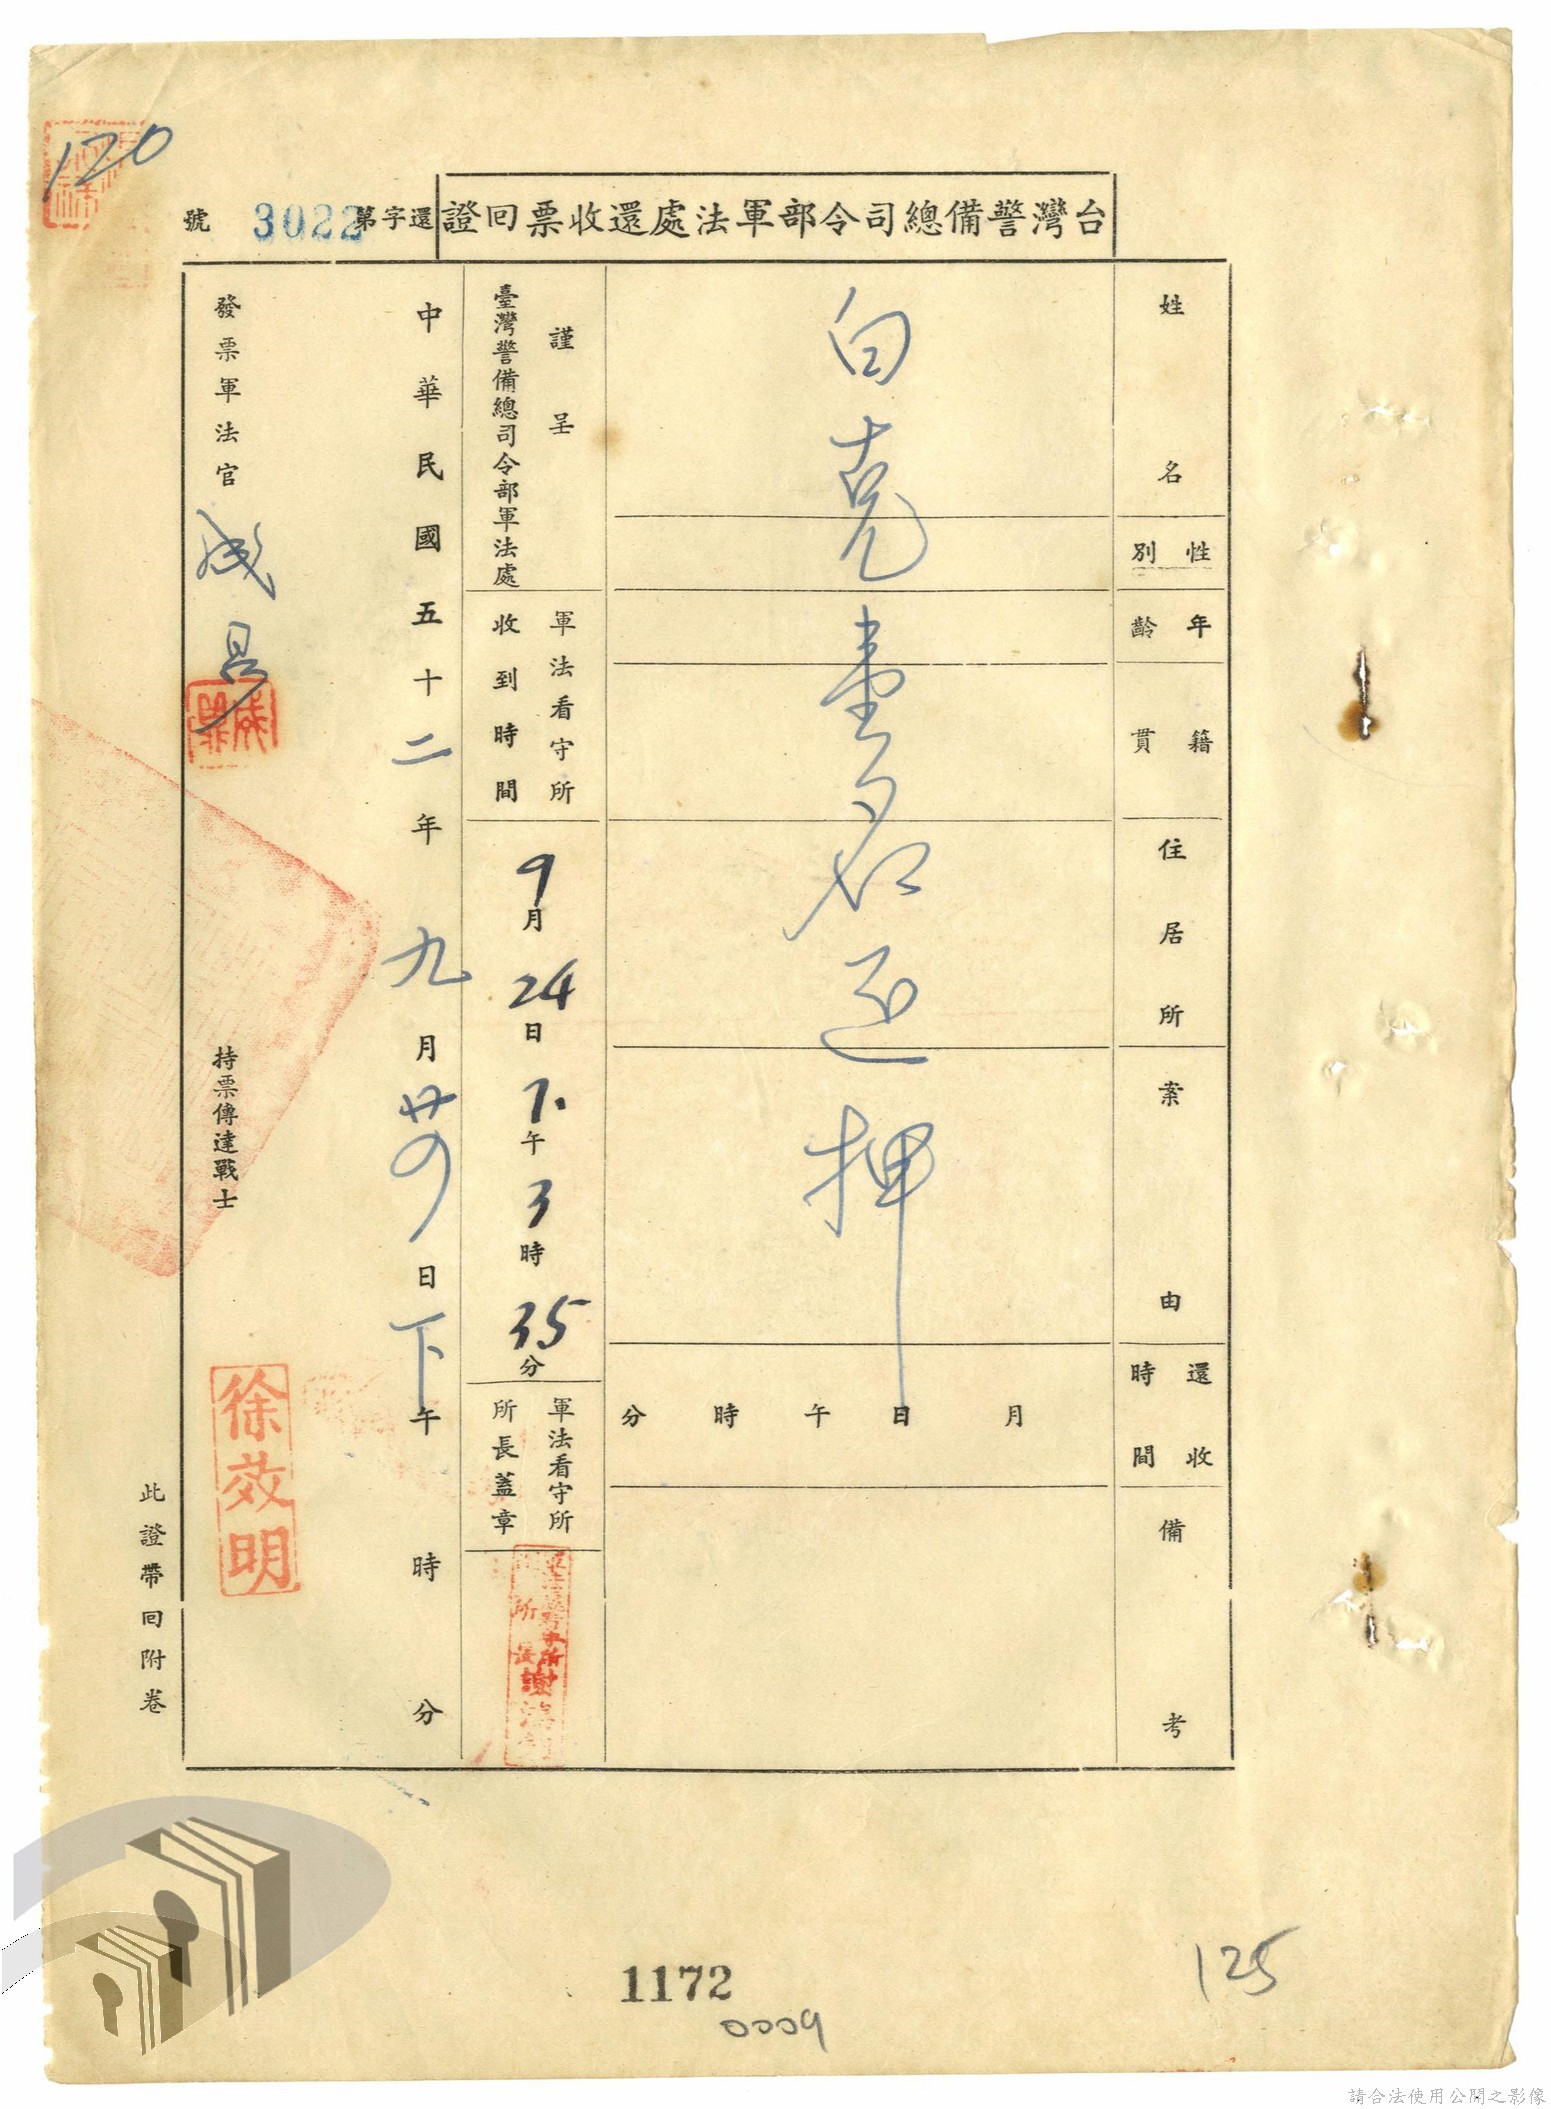 120
台灣警備總司令部軍法處還收票回證
還字第3022號
姓名
性別
年齡
籍貫
住居所
案由
還收時間
備考
白克壹名還押
月日午時分
謹呈
臺灣警備總司令部軍法處
軍法看守所收到時間
9月24日下午3時35分
軍法看守所所長蓋章
所長謝
中華民國五十二年九月廿四日下午時分
發票軍法官
成
持票傳達戰士
徐效明
此證帶回附卷
1172
0009
125
請合法使用公開之影像